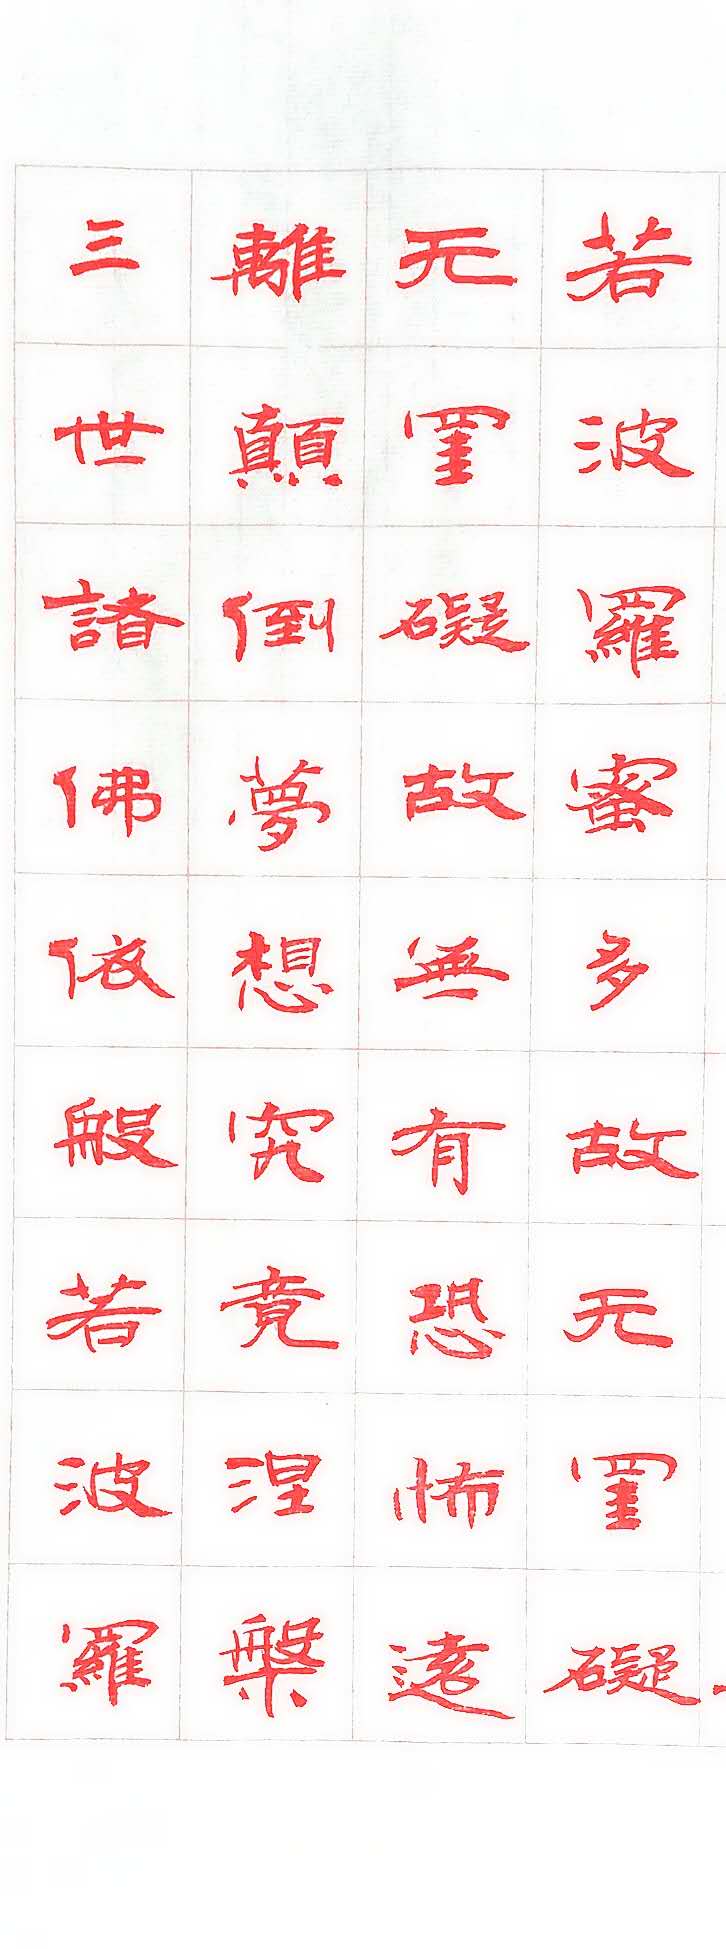 若波羅蜜多故无罣礙
无罣礙故無有恐怖遠
離顛倒夢想究竟涅槃
三世諸佛依般若波羅